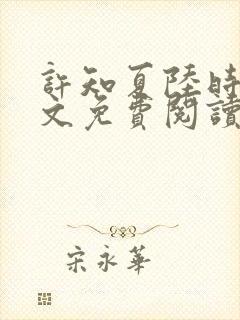 許知夏陸時
文免費閱讀
宋永華